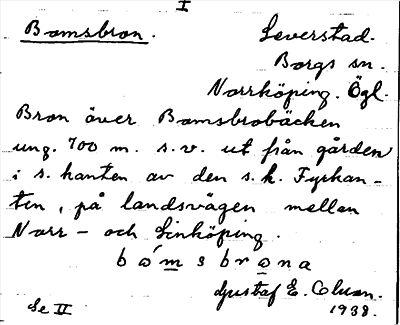 I
Bomsbron.
Leverstad.
Borgs sn.
Norrköping. Ögl.
Bron över Bomsbrobäcken
ung. 700 m. s.v. ut från gården
i s. kanten av den s.k. Fyrkan-
ten, på landsvägen mellan
Norr- och Linköping.
bómsbrona
Gustaf E.
1938.
Se II